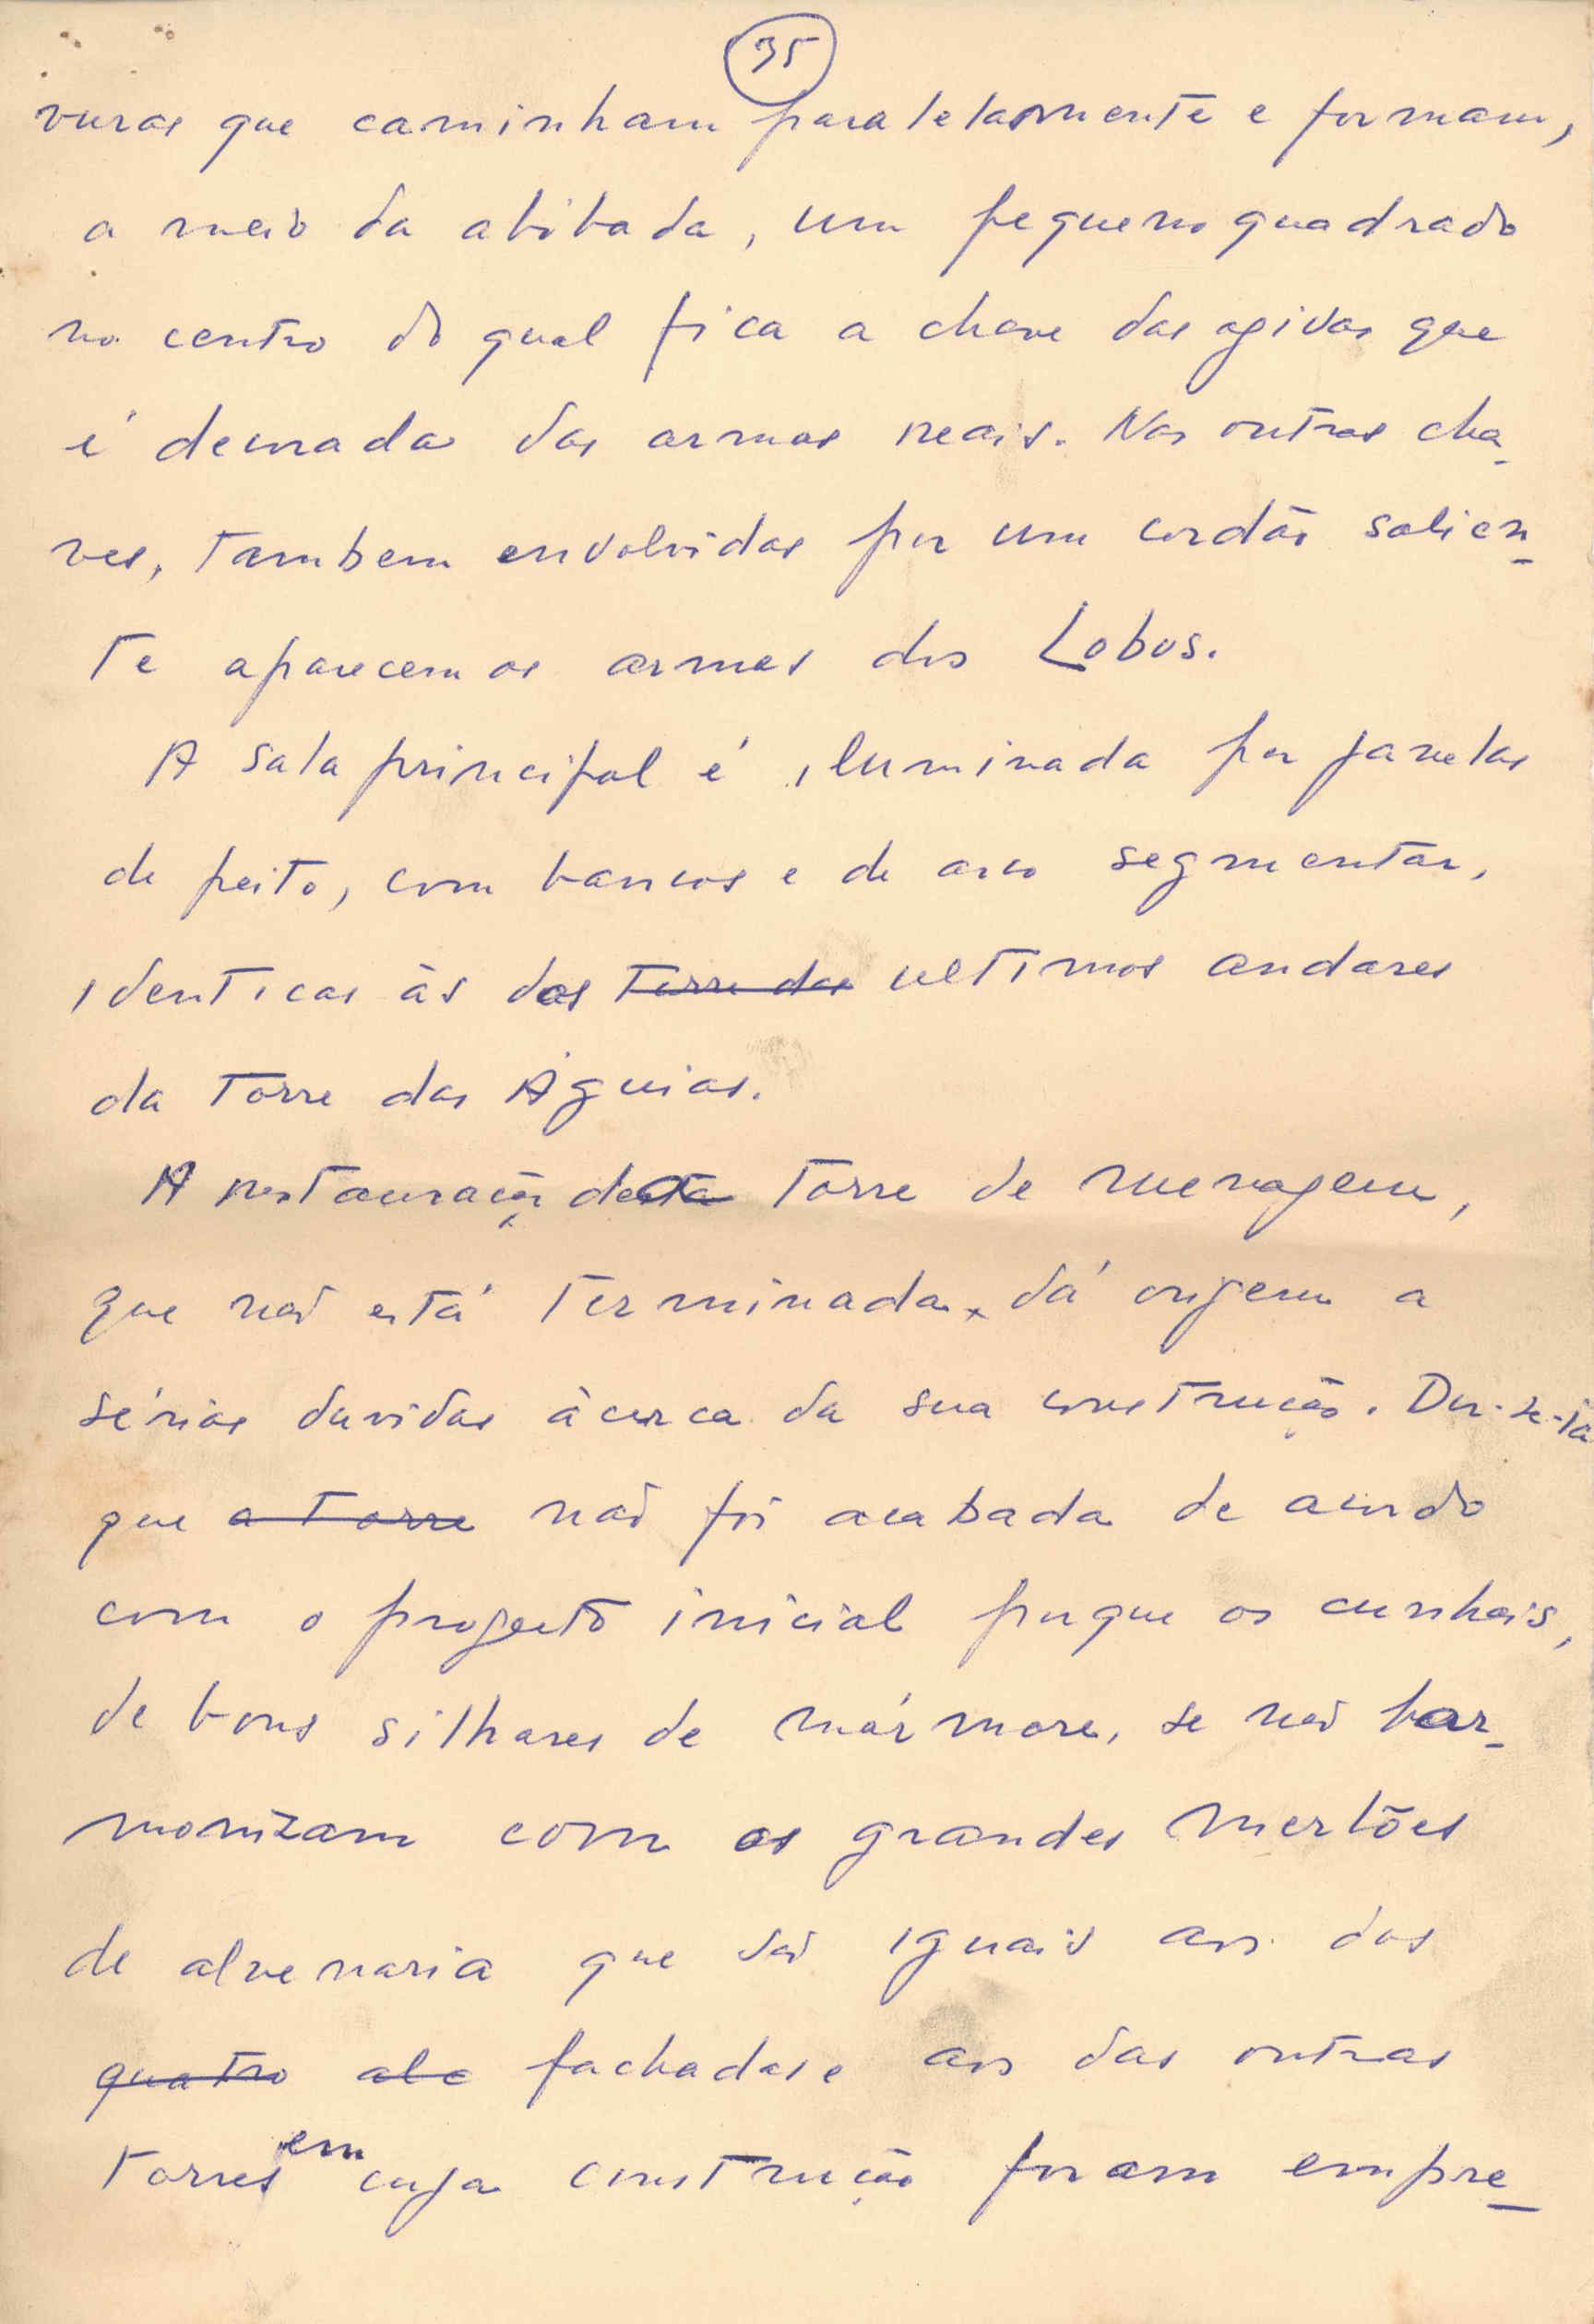 35
vuras que caminham paralelamente e formam,
a meio da abóbada, um pequeno quadrado
no centro do qual fica a chave das ogivas que
é decorada das armas reais. Nas outras cha-
ves, tambem envolvidas por um cordão salien-
te aparecem as armas dos Lobos.
A sala principal é iluminada por janelas
de peito, com bancos e de arco segmentar,
identicas às dos torre das ultimos andares
da Torre das Águias.
A restauração desta torre de menagem,
que não está terminada, dá origem a
sérias duvidas àcerca da sua construção. Dir-se-ia
que a torre não foi acabada de acordo
com o projecto inicial porque os cunhais,
de bons silhares de mármore, se não har-
monizam com os grandes merlões
de alvenaria que são iguais aos das
quatro fachadas e aos das outras
torres em cuja construção foram empre-